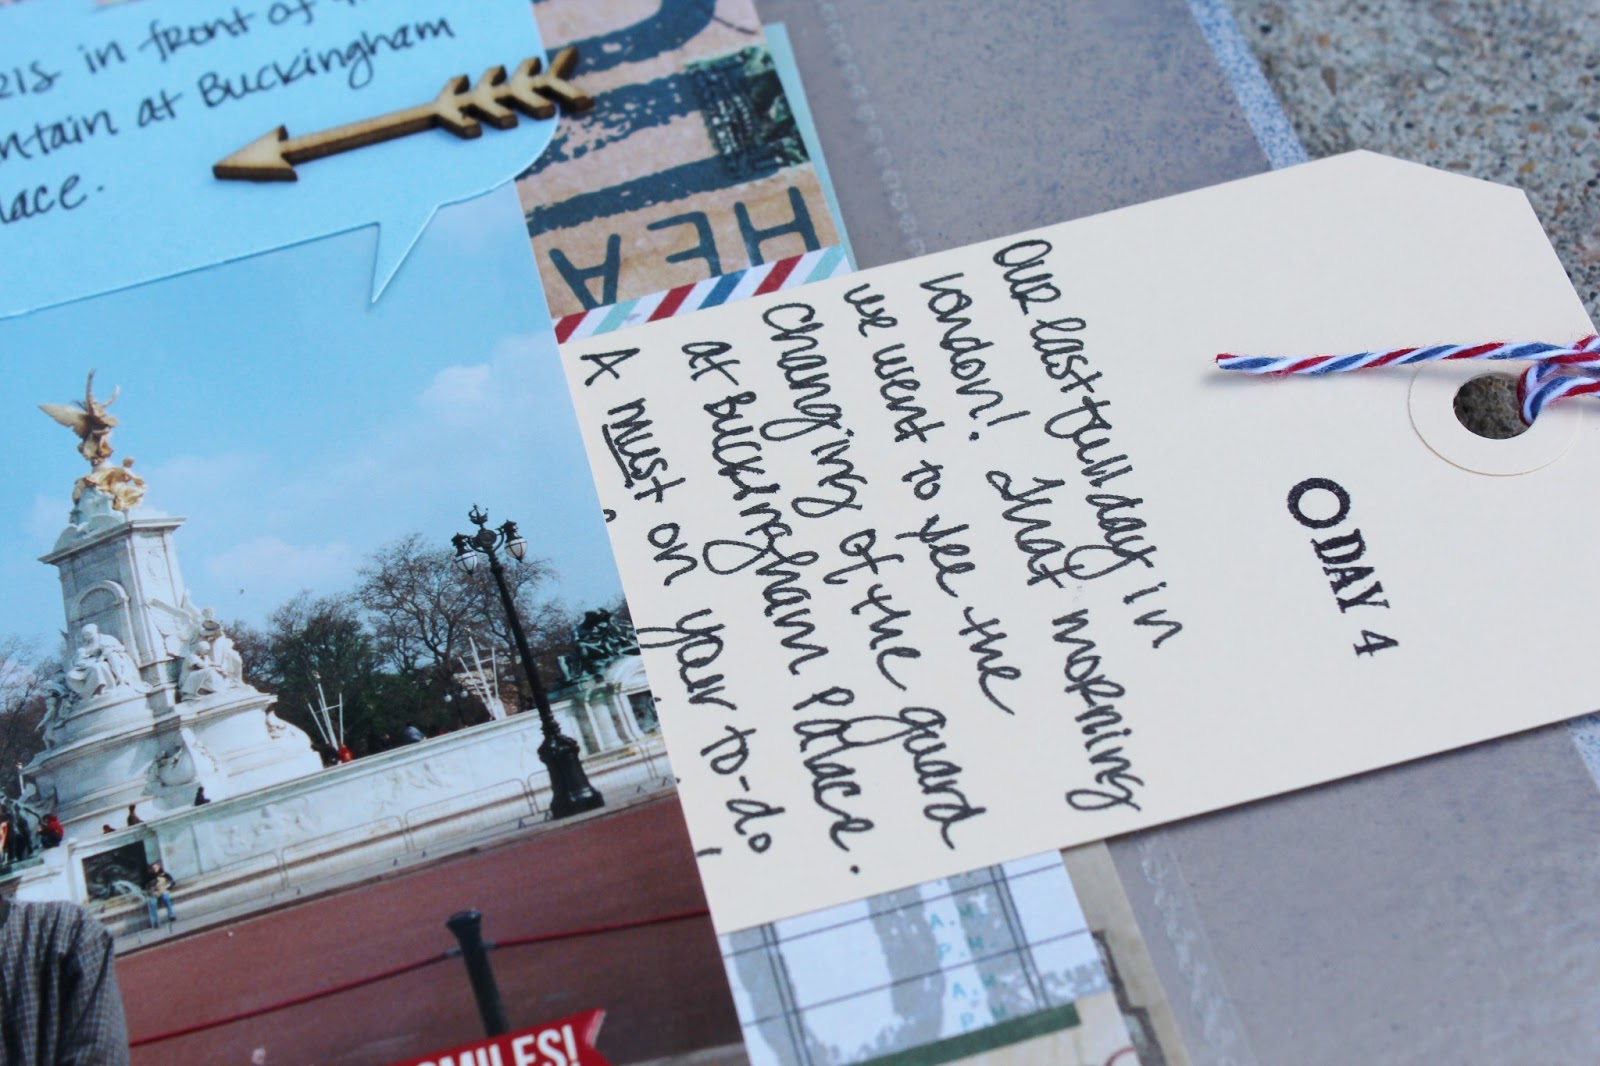 in front of
at Buckingham
HEA
DAY 4
Our last full day in
London! That morning
we went to see the
Changing of the guard
at Buckingham Palace.
A must on your to-do
A.M.
P.M.
A.M.
P.M.
SMILES!